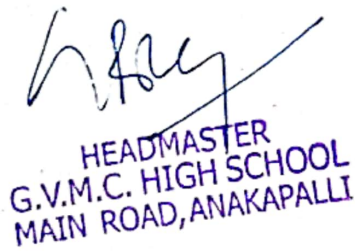 HEADMASTER
G.V.M.C. HIGH SCHOOL
MAIN ROAD, ANAKAPALLI